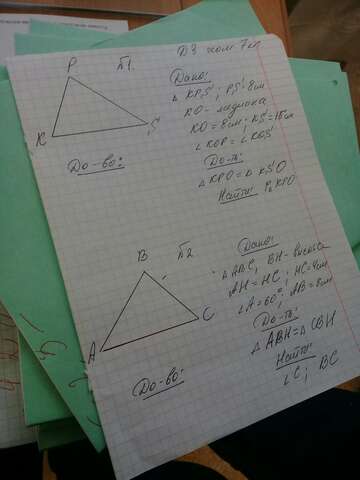 ДЗ геом 7кл
P
№1.
K
S
До-во:
Дано:
△ KPS; PS=8см
KO - медиана
KO=8см; KS=15см
∠KOP=∠KOS
До-ть:
△KPO=△KSO
Найти: P△KPO
B
№2
A
C
До-во:
Дано:
△ABC, BH-высота
AH=HC; HC=4см
∠A=60°; AB=8см
До-ть:
△ABH=△CBH
Найти:
∠C; BC